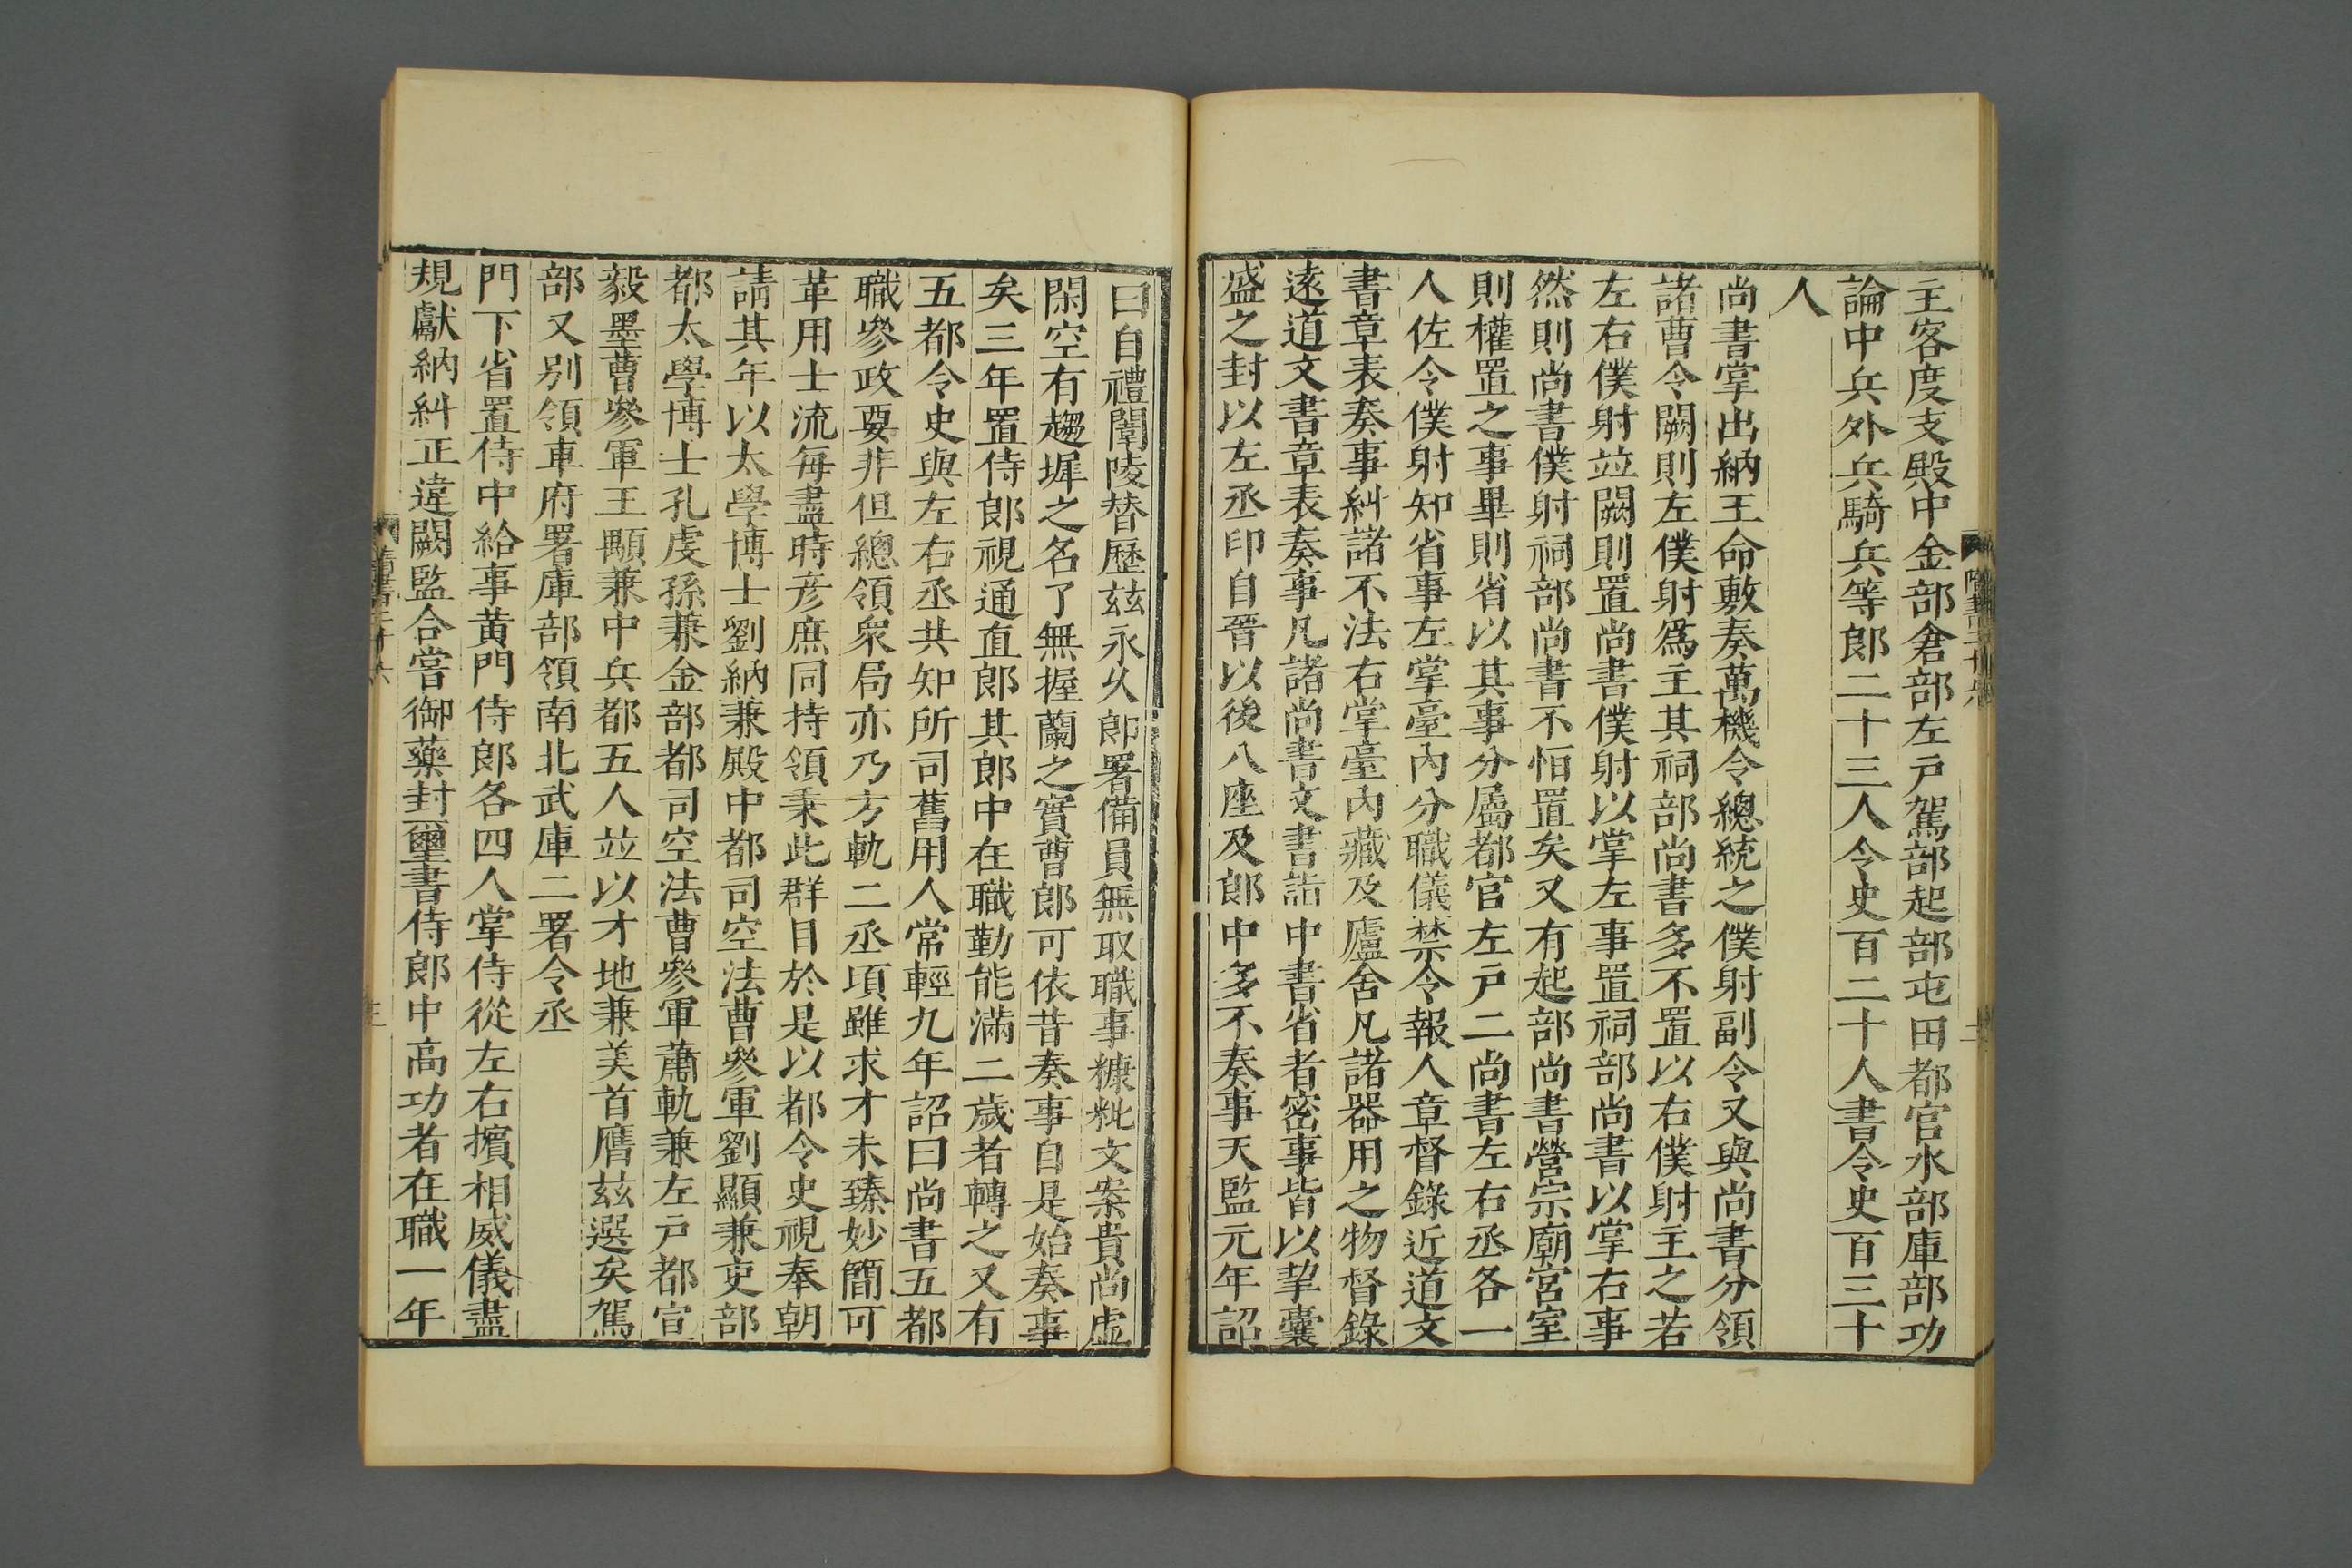 主客度支殿中金部倉部左戸駕部起部屯田都官水部庫部功
論中兵外兵騎兵等郎二十三人令史百二十人書令史百三十
人
尚書掌出納王命敷奏萬機令總統之僕射副令又與尚書分領
諸曹令闕則左僕射爲主其祠部尚書多不置以右僕射主之若
左右僕射竝闕則置尚書僕射以掌左事置祠部尚書以掌右事
然則尚書僕射祠部尚書不恒置矣又有起部尚書營宗廟宮室
則權置之事畢則省以其事分屬都官左戸二尚書左右丞各一
人佐令僕射知省事左掌臺內分職儀禁令報人章督錄近道文
書章表奏事糾諸不法右掌臺內藏及廬舍凡諸器用之物督錄
遠道文書章表奏事凡諸尚書文書詣中書省者密事皆以挈囊
盛之封以左丞印自晉以後八座及郎中多不奏事天監元年詔
曰自禮闈陵替歷茲永久郎署備員無取職事糠粃文案貴尚虛
閑空有趨墀之名了無握蘭之實曹郎可依昔奏事自是始奏事
矣三年置侍郎視通直郎其郎中在職勤能滿二歲者轉之又有
五都令史與左右丞共知所司舊用人常輕九年詔曰尚書五都
職參政要非但總領衆局亦乃方軌二丞頃雖求才未臻妙簡可
革用士流每盡時彦庶同持領秉此群目於是以都令史視奉朝
請其年以太學博士劉納兼殿中都司空法曹參軍劉顯兼吏部
都太學博士孔虔孫兼金部都司空法曹參軍蕭軌兼左戸都宣
毅墨曹參軍王顒兼中兵都五人竝以才地兼美首膺茲選矣駕
部又别領車府署庫部領南北武庫二署令丞
門下省置侍中給事黄門侍郎各四人掌侍從左右擯相威儀盡
規獻納糾正違闕監合嘗御藥封璽書侍郎中高功者在職一年